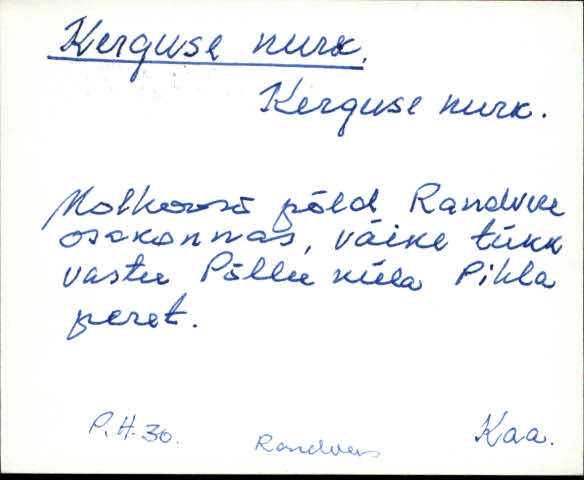 Kerguse nurk.
Kerguse nurk.
põld Randvere
osakonnas, väike tükk
vastu Põllu küla Pihla
peret.
P.H. 30. Randvere Kaa.